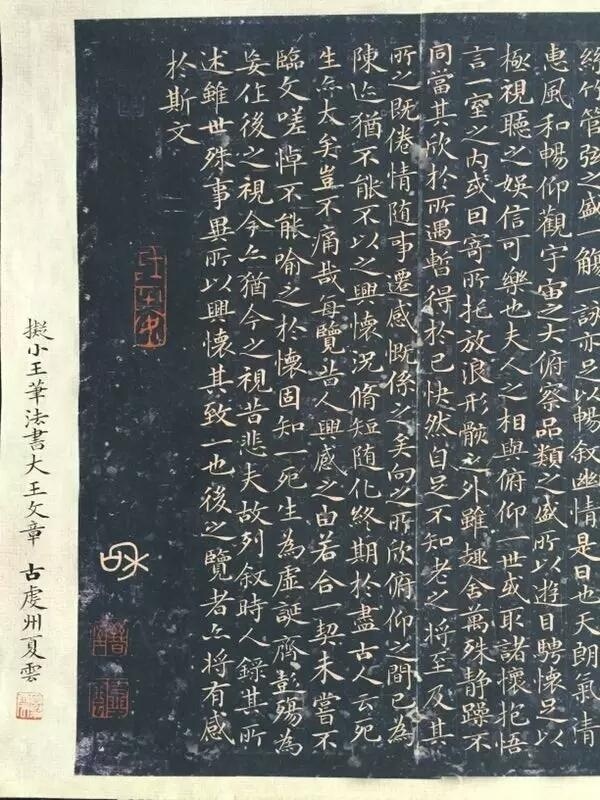 絲竹管弦之盛觴一詠亦足以暢叙幽情是日也天朗氣清
惠風和暢仰觀宇宙之大俯察品類之盛所以遊目騁懷足以
極視聽之娛信可樂也夫人之相與俯仰一世或取諸懷抱悟
言一室之内或囙寄所托放浪形骸之外雖趣舍萬殊静躁不
同當其欣於所遇暫得於己快然自足不知老之將至及其
所之既倦情随事遷感慨係之矣向之所欣俯仰之間已為
陳迹猶不能不以之興懷況脩短随化終期於盡古人云死
生亦大矣豈不痛哉每覽昔人興感之由若合一契未嘗不
臨文嗟悼不能喻之於懷固知一死生為虛誕齊彭殤為
妄作後之視今亦猶今之視昔悲夫故列叙時人錄其所
述雖世殊事異所以興懷其致一也後之覽者亦將有感
於斯文
擬小王筆法書大王文章 古處州夏雲